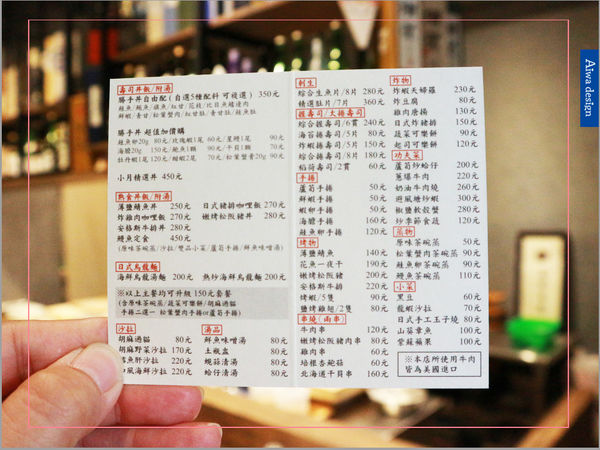 壽司丼飯/附湯
勝手丼自由配(自選5種配料 可複選) 350元
勝手丼 超值加價購
鮭魚卵20g 80元/玫瑰蝦1尾 60元/星鰻1尾 90元
海膽20g 150元/鮑魚1顆 90元/干貝1顆 70元
牡丹蝦1尾 120元/甜蝦2尾 70元/松葉蟹膏20g 90元
小月精選丼 450元
熟食丼飯/附湯
薄鹽鯖魚丼 250元 日式豬排咖哩飯 270元
炸雞肉咖哩飯 270元 嫩烤松阪豬丼 280元
安格斯牛排丼 280元
鰻魚定食 450元
(原味茶碗蒸/沙拉/雙品小菜/蘆筍手捲/鮮魚味噌湯)
日式烏龍麵
海鮮烏龍湯麵 200元 熱炒海鮮烏龍麵 200元
※以上主餐均可升級 150元套餐
(含原味茶碗蒸/蔬菜可樂餅/胡麻過貓
手捲二選一 松葉蟹肉手捲or蘆筍手捲)
沙拉
胡麻過貓 80元
胡麻野菜沙拉 170元
鱈魚肝沙拉 220元
和風海鮮沙拉 220元
湯品
鮮魚味噌湯 80元
土瓶蒸 80元
蜆蒜清湯 80元
蛤仔清湯 80元
刺生
綜合生魚片/8片 280元
精選肚片/7片 360元
握壽司/大捲壽司
綜合握壽司/6貫 240元
海苔捲壽司/5片 80元
炸蝦捲壽司/5片 150元
綜合捲壽司/8片 180元
稻荷壽司/2貫 60元
手捲
蘆筍手捲 50元
鮮蝦手捲 50元
蝦卵手捲 50元
海膽手捲 160元
烤物
薄鹽鯖魚 140元
花魚一夜干 190元
嫩烤松阪豬 200元
安格斯牛排 220元
烤蝦/5隻 90元
鹽烤雞翅/2隻 80元
串燒(兩串)
牛肉串 120元
嫩烤松阪豬肉串 80元
雞肉串 60元
培根杏鮑菇 60元
北海道干貝串 160元
炸物
炸蝦天婦羅 230元
炸豆腐 80元
雞肉唐揚 130元
日式炸豬排 150元
蔬菜可樂餅 90元
起司可樂餅 120元
功夫菜
蘆筍炒蛤仔 200元
蔥爆牛肉 220元
奶油牛肉燒 260元
避風塘炒蝦 300元
椒鹽軟殼蟹 280元
炒季節食蔬 120元
蒸物
原味茶碗蒸 50元
松葉蟹肉茶碗蒸 90元
鮭魚卵茶碗蒸 90元
鰻魚茶碗蒸 110元
小菜
黑豆 60元
龍蝦沙拉 70元
日式手工玉子燒 80元
山葵章魚 100元
紫蘇蘋果 100元
※本店所使用牛肉
皆為美國進口
Aiwa design